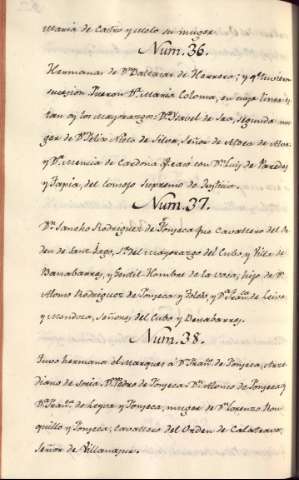 Maria de Castro y Melo su muger
Num. 36.
Hermana de Dn Baltasar de Herrera; y
sucesion fueron Da Maria Coloma, en cuya linea
tan ay los mayorazgos Da Isabel de Seo, segunda mu
ger de Dn Felix Nieto de Silva, Señor de Aldea de Alor
y Da Mencia de Cardona casó con Dn Luis de Paredes
y Tapia, del Consejo Supremo de Justicia.
Num. 37.
Dn Sancho Rodriguez de Fonseca fue Cavallero del Or
den de Sant-Iago, Sr. del mayorazgo del Cubo, y Villa de
Benabarres, y Gentil-Hombre de la voca; hijo de Dn
Alonso Rodriguez de Fonseca y Toledo, y Da Franca de Leiva
y Mendoza, Señores del Cubo y Benabarres.
Num. 38.
Tuvo hermano el Marques á Dn Franco de Fonseca, Arce
diano de Soria. Dn Pedro de Fonseca. Dn Alonso de Fonseca, y
Da Franca de Leyva y Fonseca, muger de Dn Lorenzo Ron
quillo y Fonseca, cavallero del Orden de Calatrava,
Señor de Villanaque.